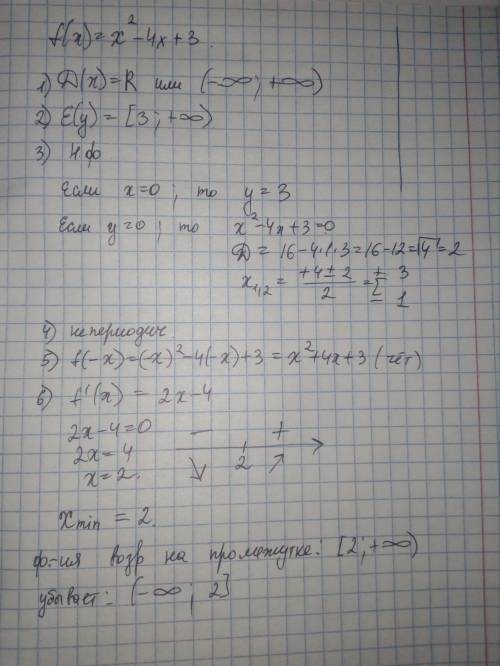 f(x) = x² - 4x + 3.
1) D(x) = R или (-∞; +∞)
2) E(y) = [3; +∞)
3) Н.ф
Если x=0; то y = 3
Если y=0; то x² - 4x + 3 = 0
D = 16 - 4·1·3 = 16 - 12 = √4 = 2
x₁,₂ = (+4 ± 2)/2 = [± 3
= 1
4) непериодич
5) f(-x) = (-x)² - 4(-x) + 3 = x² + 4x + 3 (чёт)
6) f'(x) = 2x - 4
2x - 4 = 0 − +
2x = 4 2
x = 2. ↘ ↗
Xmin = 2.
ф-ия возр на промежутке: [2; +∞)
убывает: (-∞; 2]